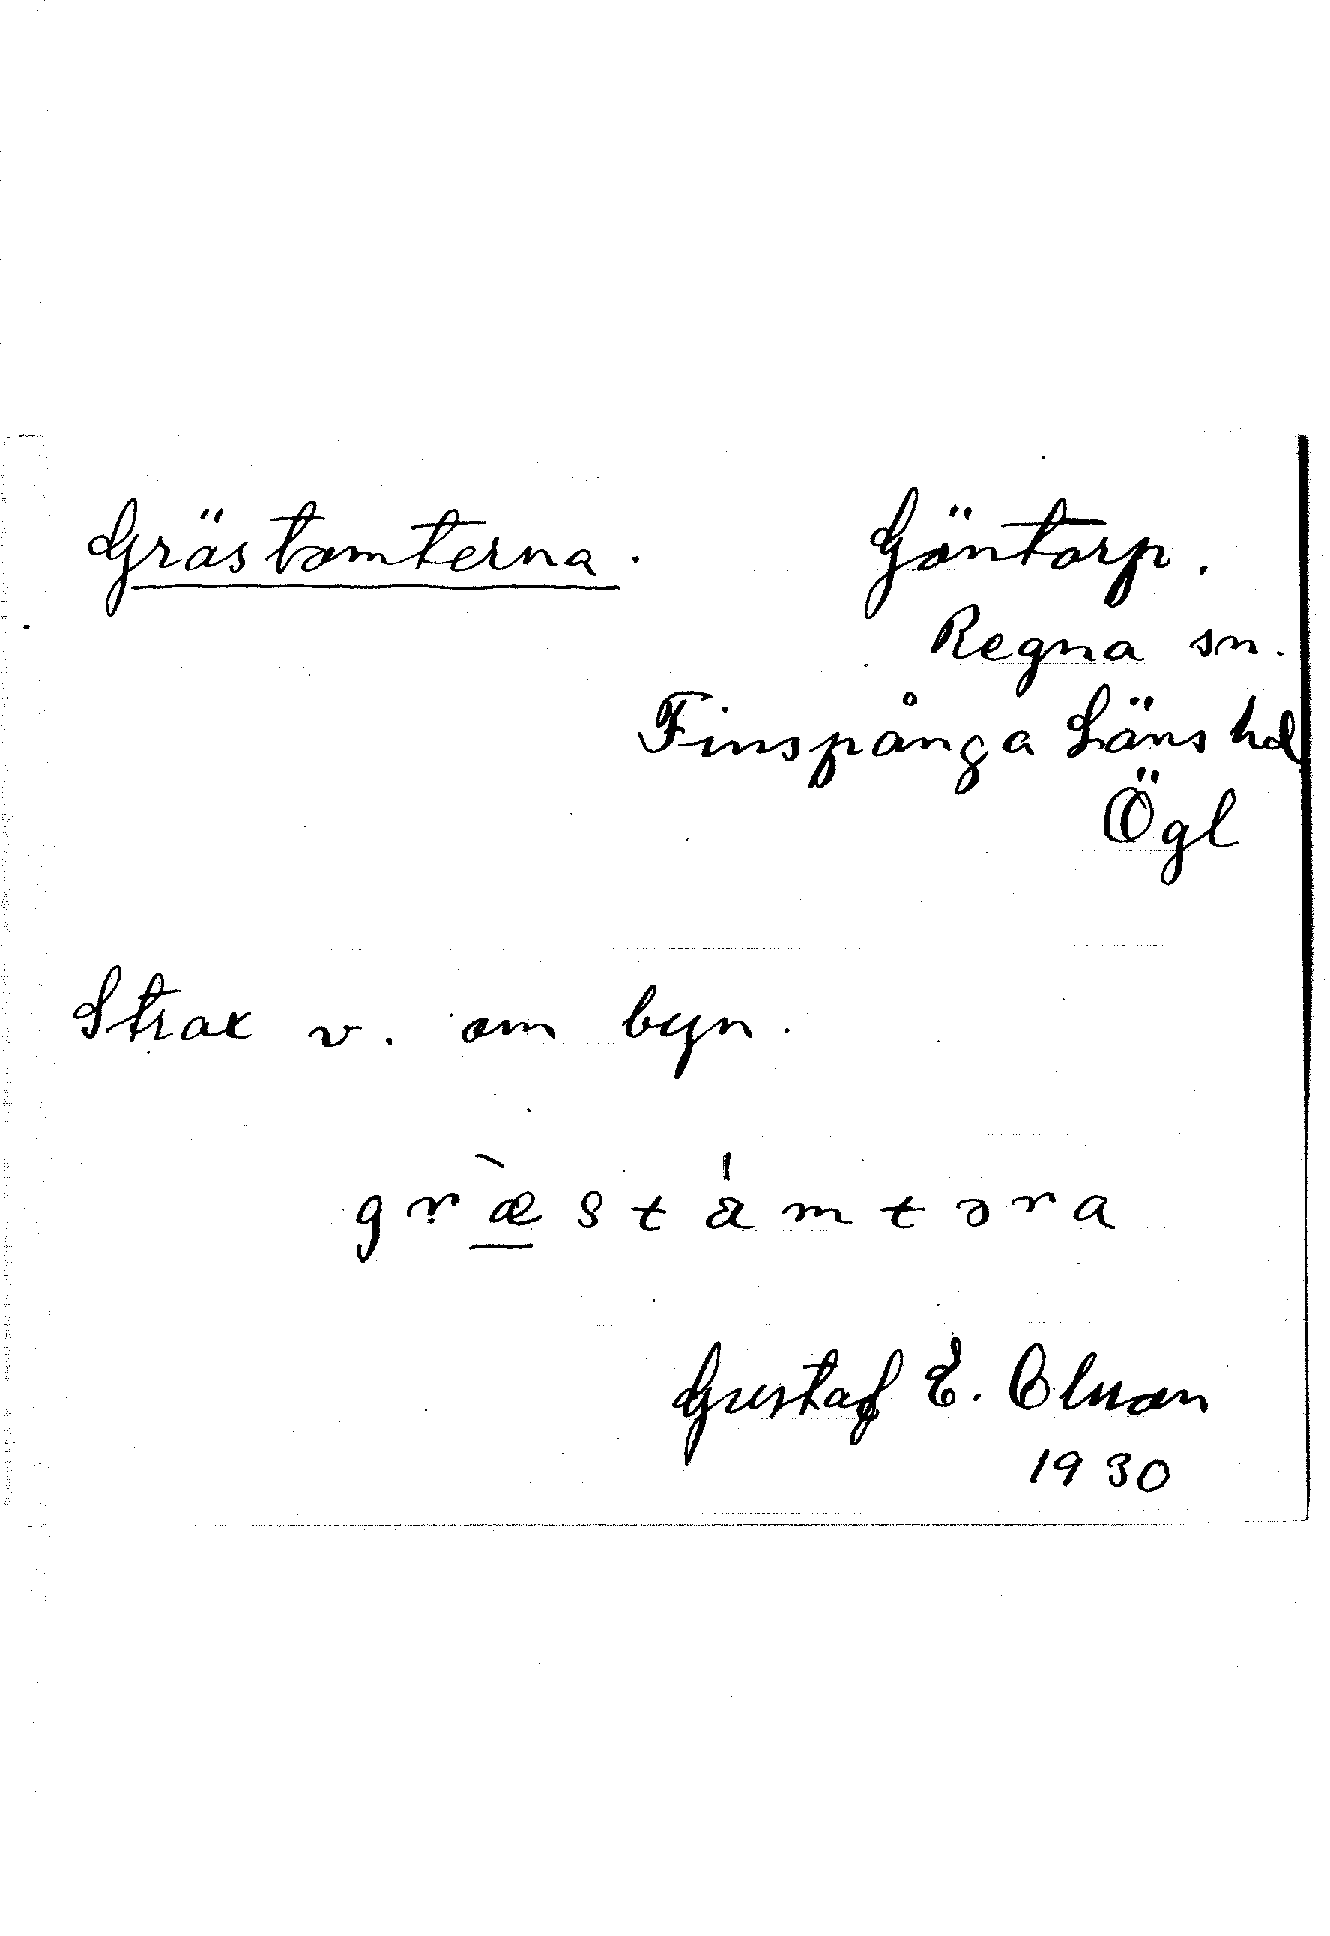 Grästomterna. Göntorp.
Regna sn.
Finspånga Läns hd
Ögl
Strax v. om byn.
græ̲̀ståmtəra
Gustaf E.
1930